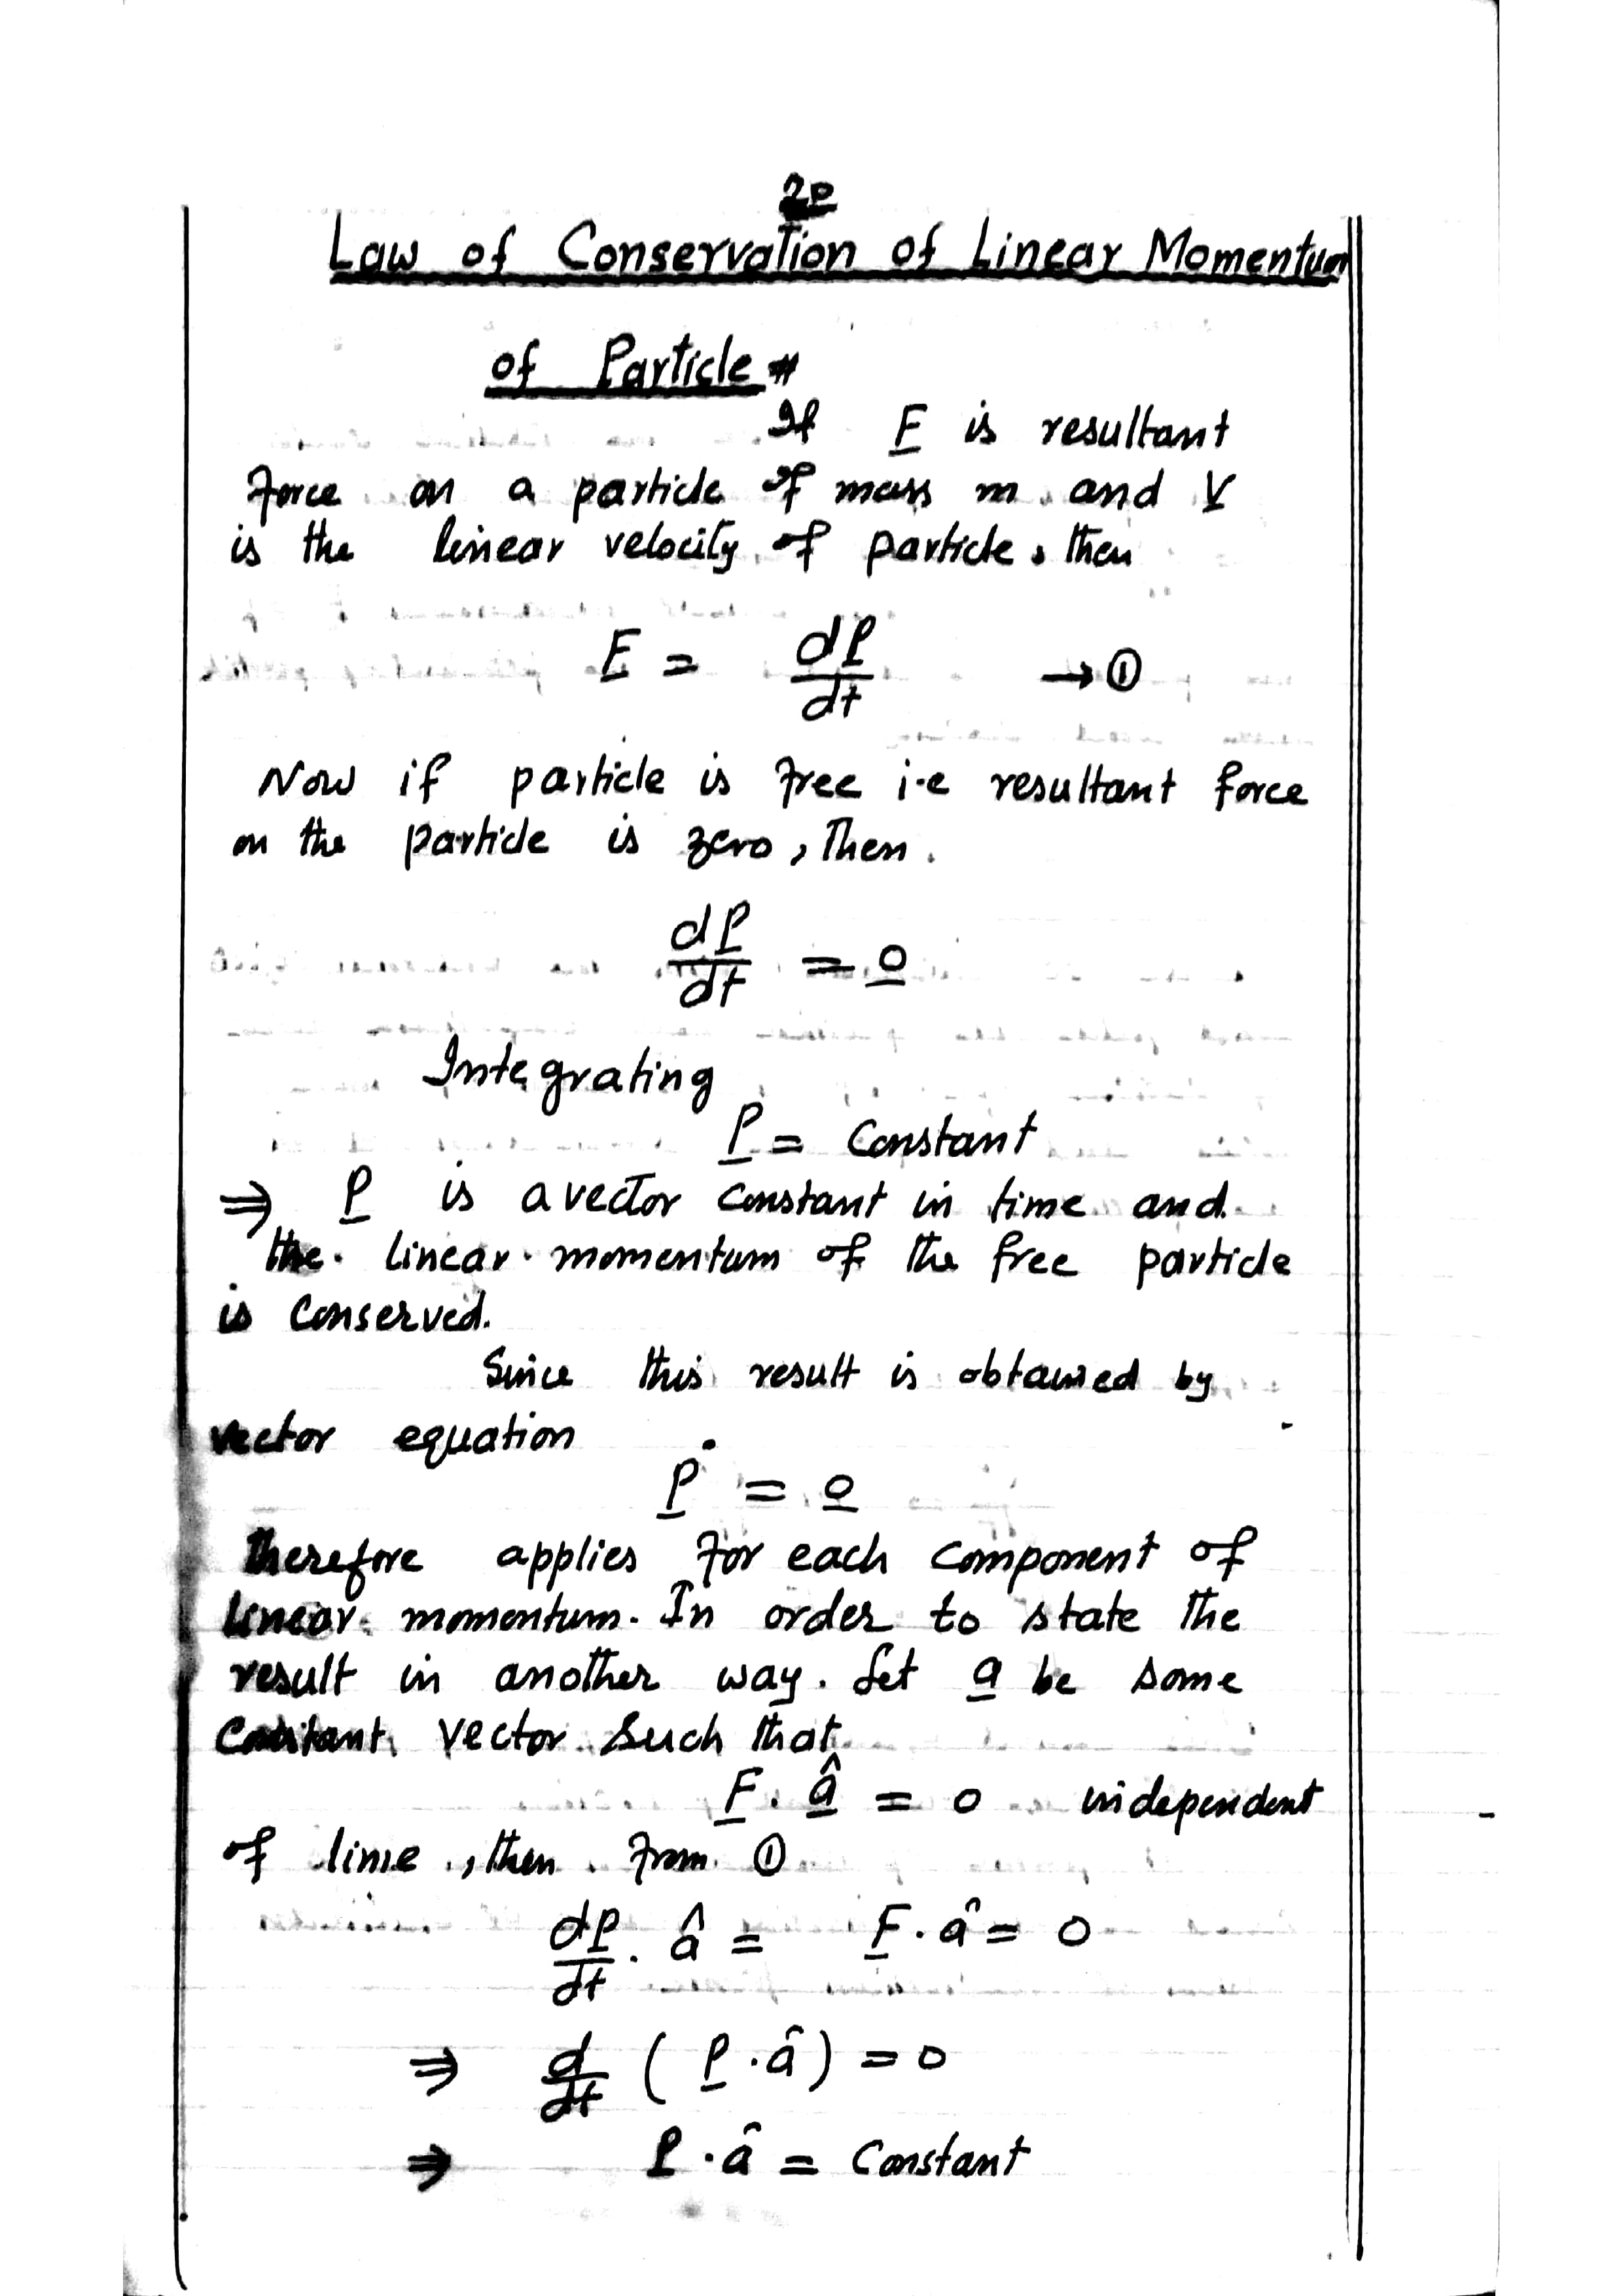 Law of Conservation of Linear Momentum
of Particle #
If F is resultant
force on a particle of mass m and V
is the linear velocity of particle, then
F = dP/dt → ①
Now if particle is free i.e resultant force
on the particle is zero, Then.
dP/dt = 0
Integrating
P = Constant
⇒ P is a vector constant in time and
the linear momentum of the free particle
is Conserved.
Since this result is obtained by
vector equation
Ṗ = 0
Therefore applies for each component of
linear momentum. In order to state the
result in another way. Let a be some
Constant Vector Such that
F . â = 0 independent
of time, then from ①
dP/dt . â = F . â = 0
⇒ d/dt ( P . â ) = 0
⇒ P . â = Constant